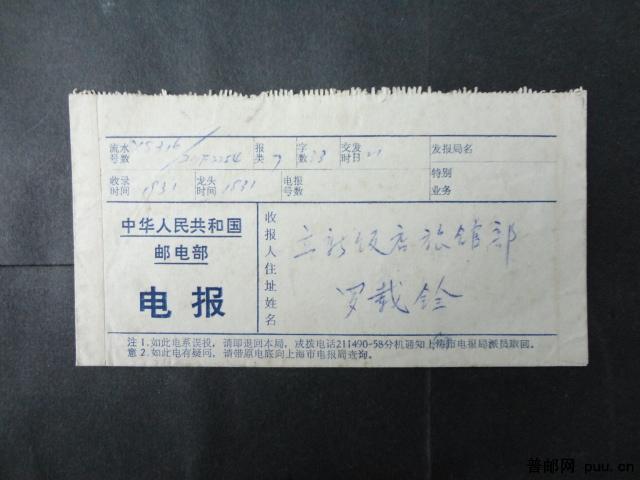 流水号数 报类 7 字数 33 交发时日 21 发报局名
收录时间 1531 龙头时间 1531 电报号数 特别业务
中华人民共和国
邮电部
电报
收报人住址姓名
立新饭店旅馆部
罗载铨
注意 1.如此电系误投,请即退回本局,或拨电话211490-58分机通知上海市电报局派员取回。
2.如此电有疑问,请带原电底向上海市电报局查询。
普邮网 puu.cn